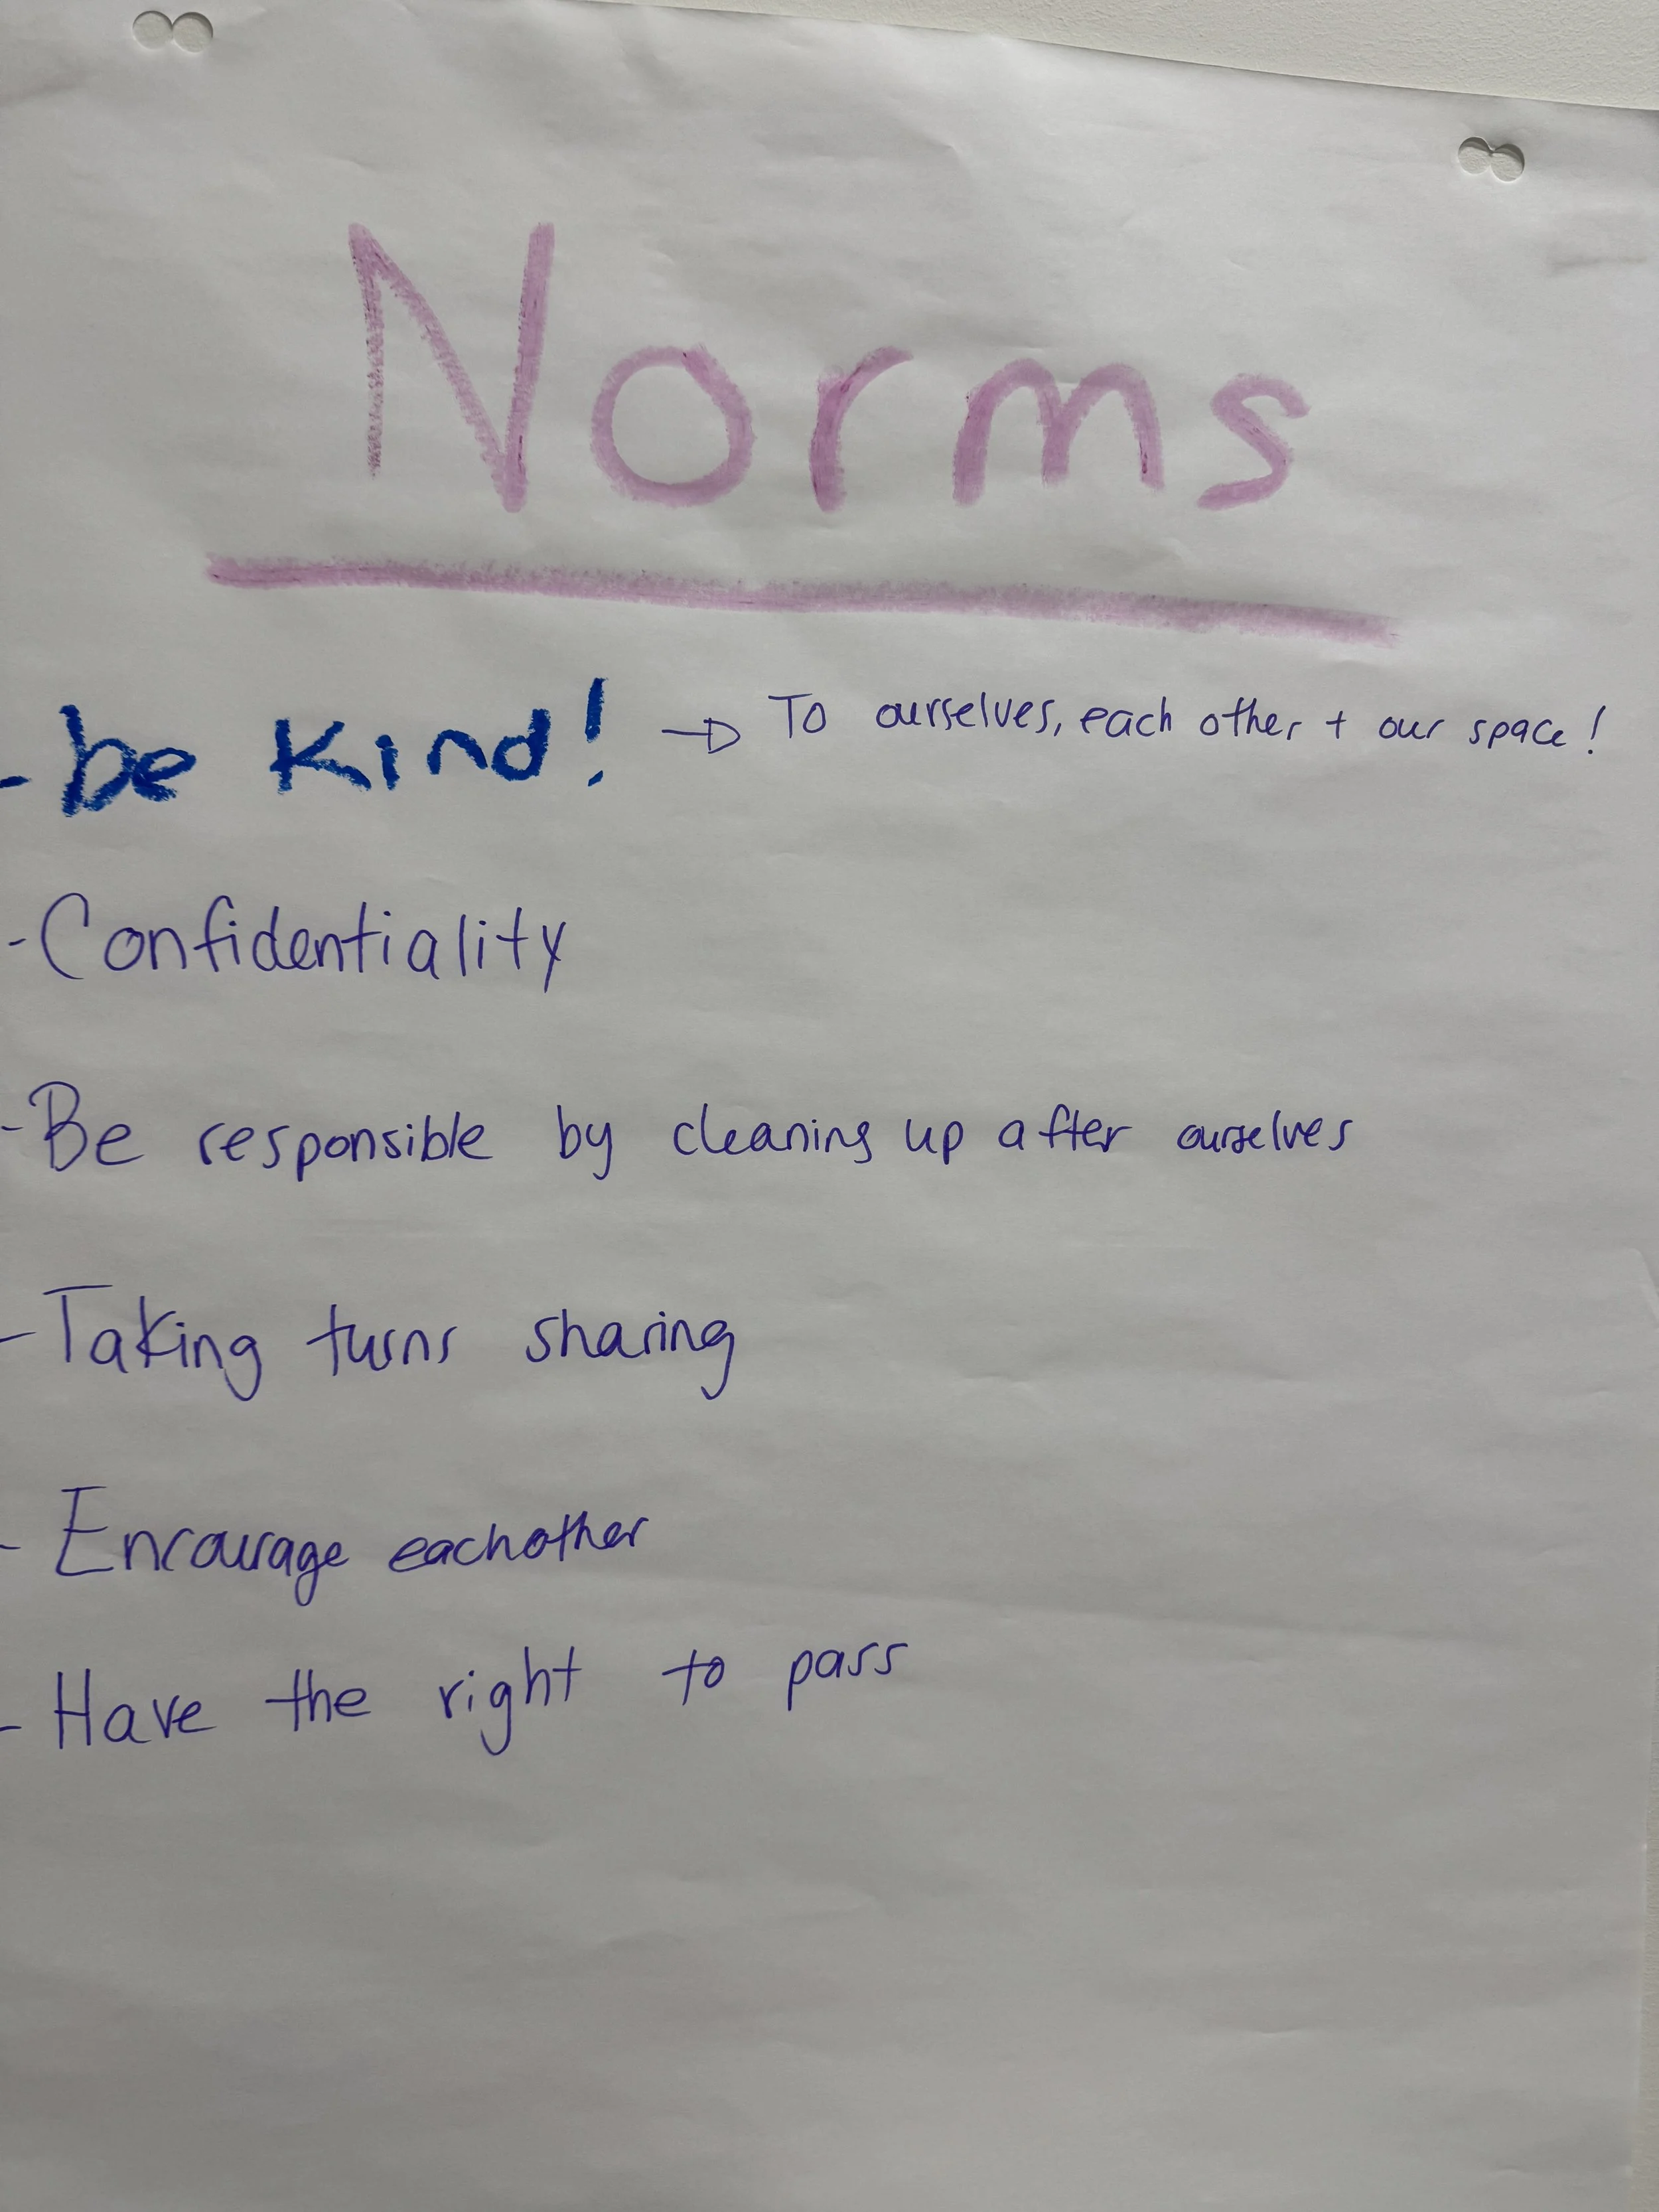 Norms
- be kind! → To ourselves, each other + our space!
- Confidentiality
- Be responsible by cleaning up after ourselves
- Taking turns sharing
- Encourage eachother
- Have the right to pass